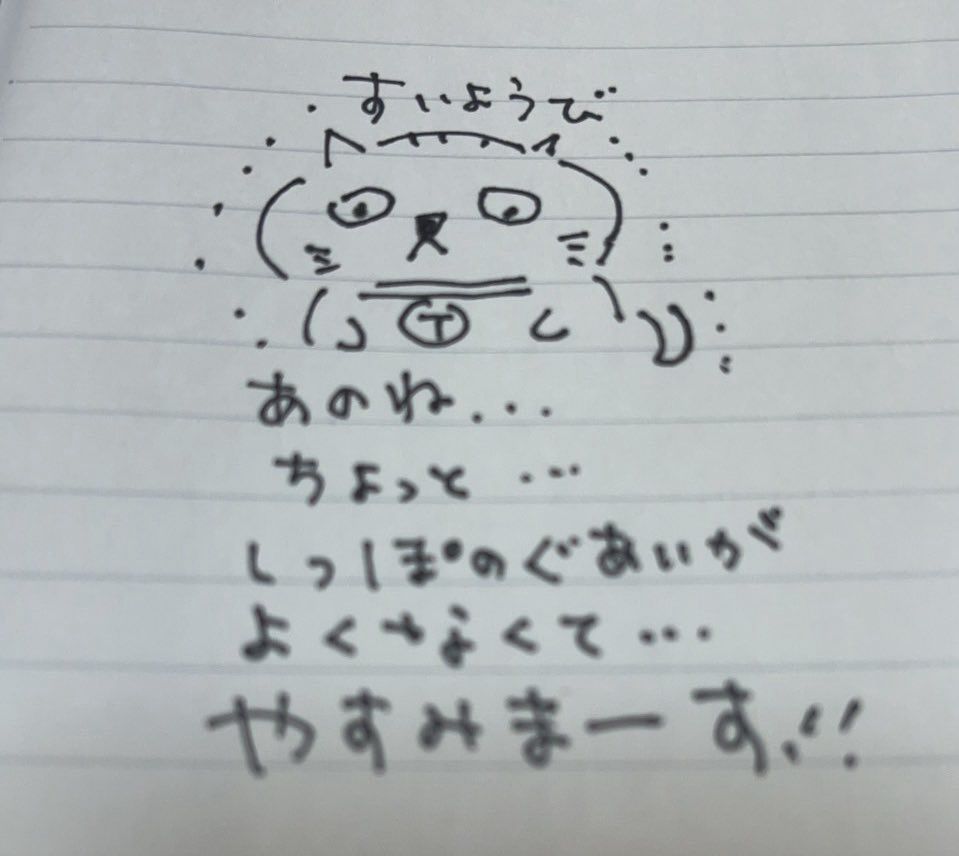 すいようび
T
あのね...
ちょっと...
しっぽのぐあいが
よくなくて...
やすみまーす!!